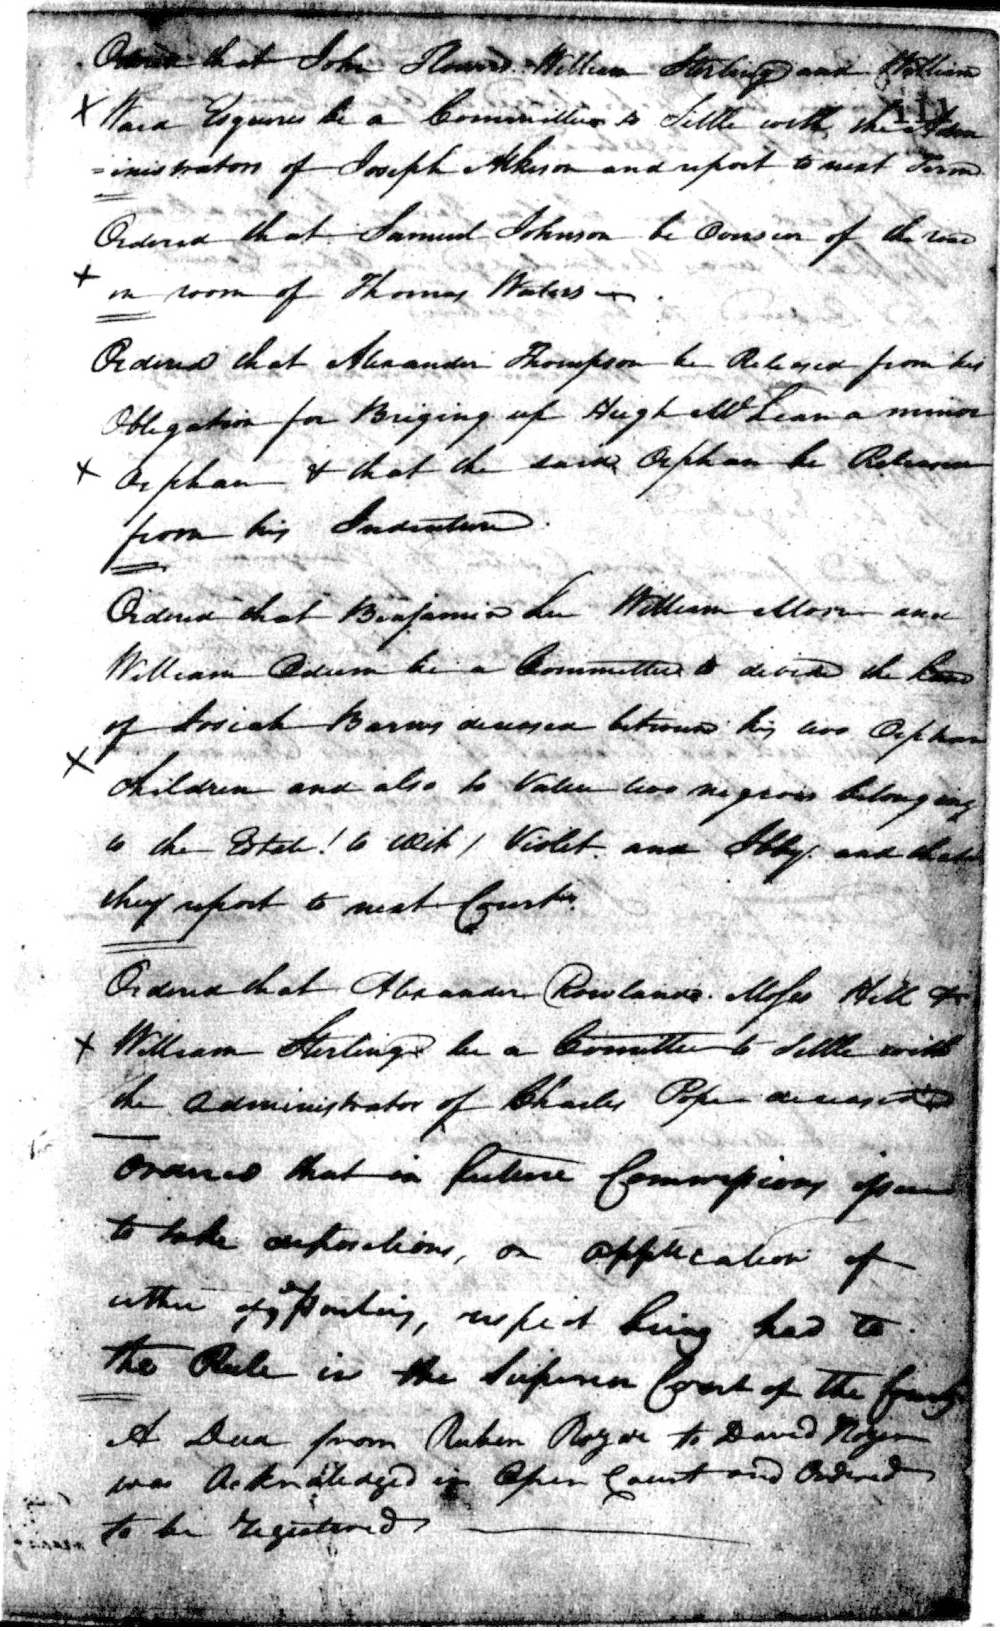 Ordered that John Flowers William Sterling and William
x Ward Esquires be a Committee to Settle with the Adm
=inistrators of Joseph Atkeson and report to next Term
Ordered that Samuel Johnson be Overseer of the
x in room of Thomas Waters
Ordered that Alexander Thompson be Released from his
Obligation for Briging up Hugh McLean a minor
x Orphan & that the said Orphan be Released
from his Indenture
Ordered that Benjamin Lee William Moore and
William Odum be a Committee to devide the Land
of Josiah Barnes deceased between his two Orphan
x Children and also to Value two negroes belonging
to the Estate! to wit/ Violet and Ibby and that
they report to next Court
Ordered that Alexander Rowland Moses Hill &
x William Sterling be a Comittee to Settle with
the administrator of Charles Pope deceased
Ordered that in future Commissions issue
to take depositions, on application of
either of ye parties, respect being had to
the Rule in the Superior Court of the County
A Deed from Ruben to David
was Acknoledged in Open Court and Ordered
to be Registered